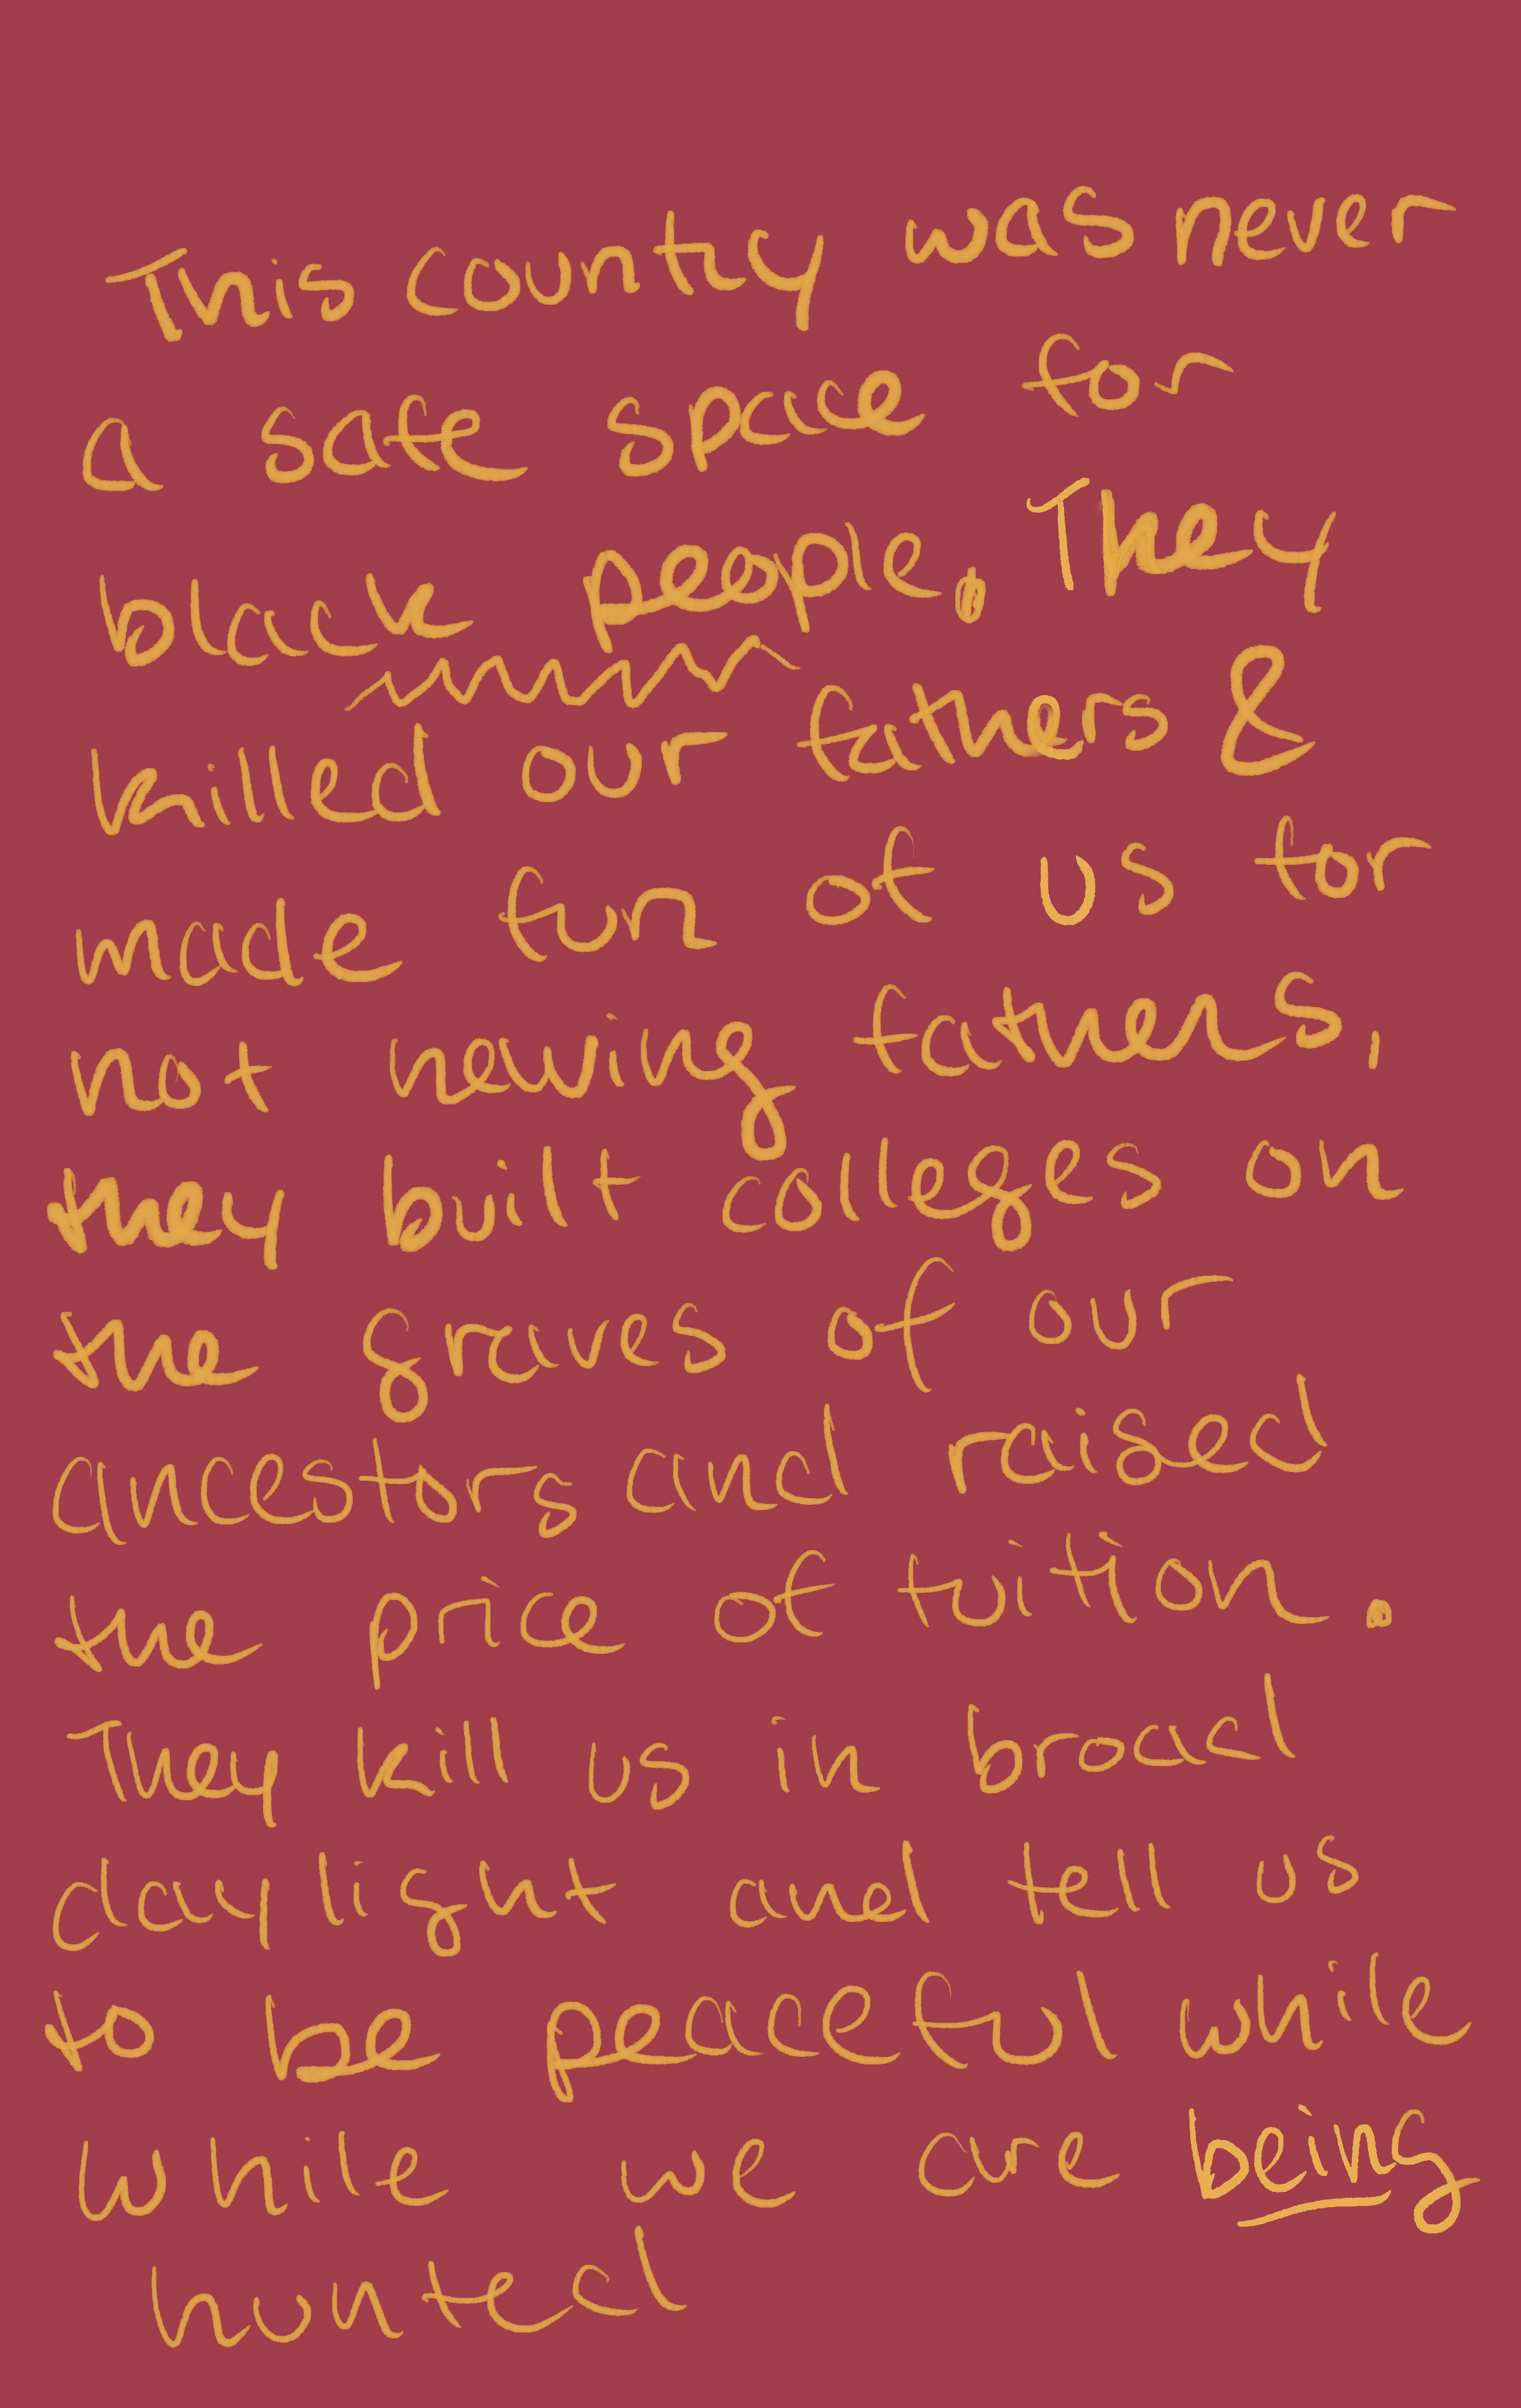 This country was never
a safe space for
black people. They
killed our fathers &
made fun of us for
not having fathers,
they built colleges on
the graves of our
ancestors and raised
the price of tuition.
They kill us in broad
daylight and tell us
to be peaceful while
while we are being
hunted